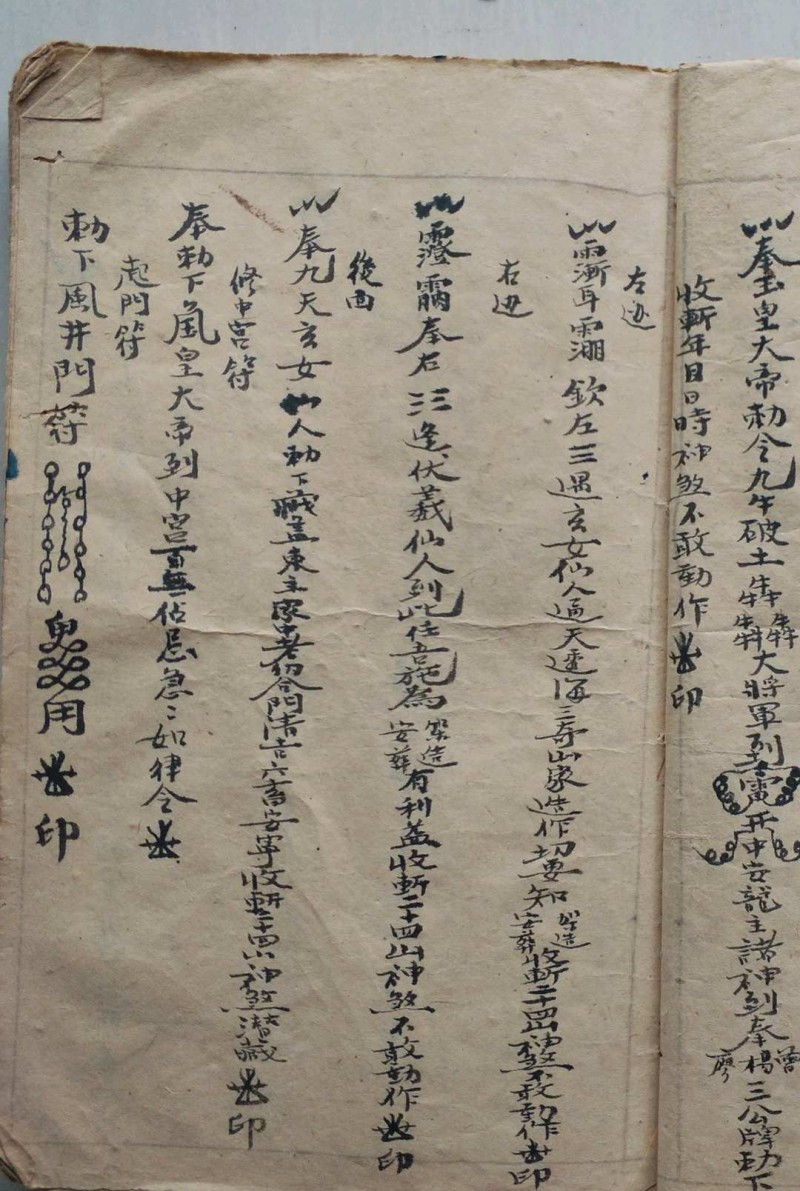 奉玉皇大帝勅令九牛破土犇犇大將軍列開中安龍主諸神列奉楊曾廖三公牌勅下
收斬年月日時神煞不敢動作印
左边
欽左三遇玄女仙人通天透海三奇山家造作切要知架造安葬收斬二十四山神煞不敢動作印
右边
奉右三逢伏羲仙人到此任吾施為架造安葬有利益收斬二十四山神煞不敢動作印
後面
奉九天玄女仙人勅下藏盖東主家中老幼合門清吉六畜安寧收斬二十四山神煞潜藏印
修中宫符
奉勅下凮皇大帝列中宫百無佔忌急急如律令
起門符
勅下風井門符用印